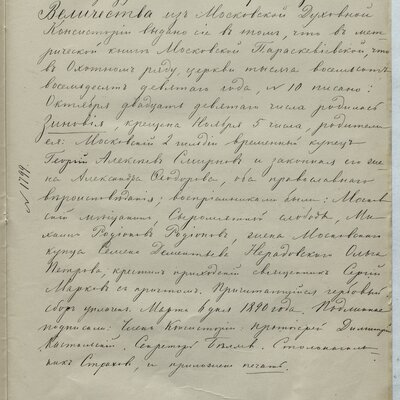 Величества изъ Московской Духовной
Консисторіи выдано сіе въ томъ, что въ мет-
рической книгѣ Московской Параскевіевской, что
въ Охотномъ ряду, церкви тысяча восемьсотъ
восемьдесятъ девятаго года, № 10 писано:
Октября двадцать девятаго числа родилась
Зиновія, крещена Ноября 5 числа, родители
ея: Московскій 2 гильдіи временный купецъ
Георгій Алексѣевъ Смирновъ и законная его же-
на Александра Ѳеодорова, оба православнаго
вѣроисповѣданія; воспріемниками были: Москов-
скій мѣщанинъ, Сыромятной слободы, Ми-
хаилъ Родіоновъ Родіоновъ, жена Московскаго
купца Семена Дементьева Нерадовскаго Ольга
Петрова, крестилъ приходскій священникъ Сергій
Марковъ съ причтомъ. Причитающійся гербовый
сборъ уплаченъ. Марта 6 дня 1890 года. Подлинное
подписали: Членъ Консисторіи Протоіерей Димитрій
Секретарь Столоначаль-
никъ Страховъ, и приложена печать.
№ 1199